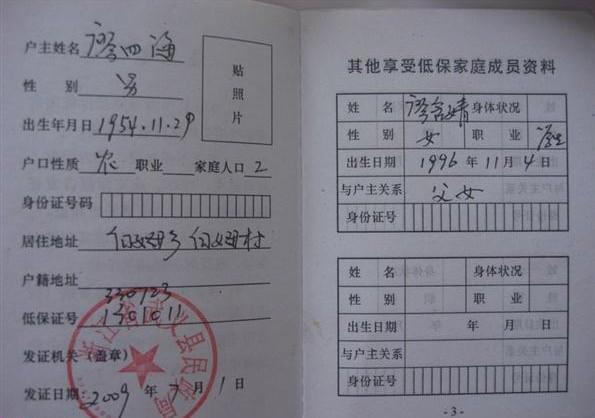 户主姓名 廖四海
性 别 男
出生年月日 1954.11.29
户口性质 农 职业 家庭人口 2
身份证号码
居住地址 白姆乡白姆村
户籍地址
低保证号 330723
1301011
发证机关（盖章）
发证日期: 2009 年 7 月 1 日
贴
照
片
浙江省武义县民政局
其他享受低保家庭成员资料
姓 名 廖含婧 身体状况
性 别 女 职 业 学生
出生日期 1996 年 11 月 4 日
与户主关系 父女
身份证号
姓 名 身体状况
性 别 职 业
出生日期 年 月 日
与户主关系
身份证号
-3-